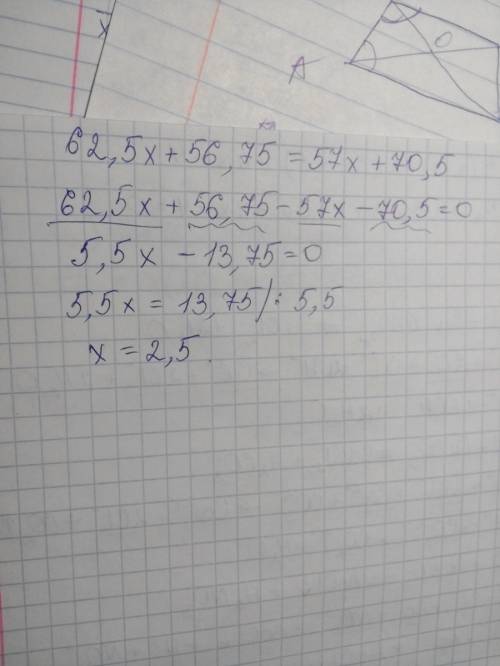 x
A
O
62,5x + 56,75 = 57x + 70,5
62,5x + 56,75 - 57x - 70,5 = 0
5,5x - 13,75 = 0
5,5x = 13,75 /: 5,5
x = 2,5.